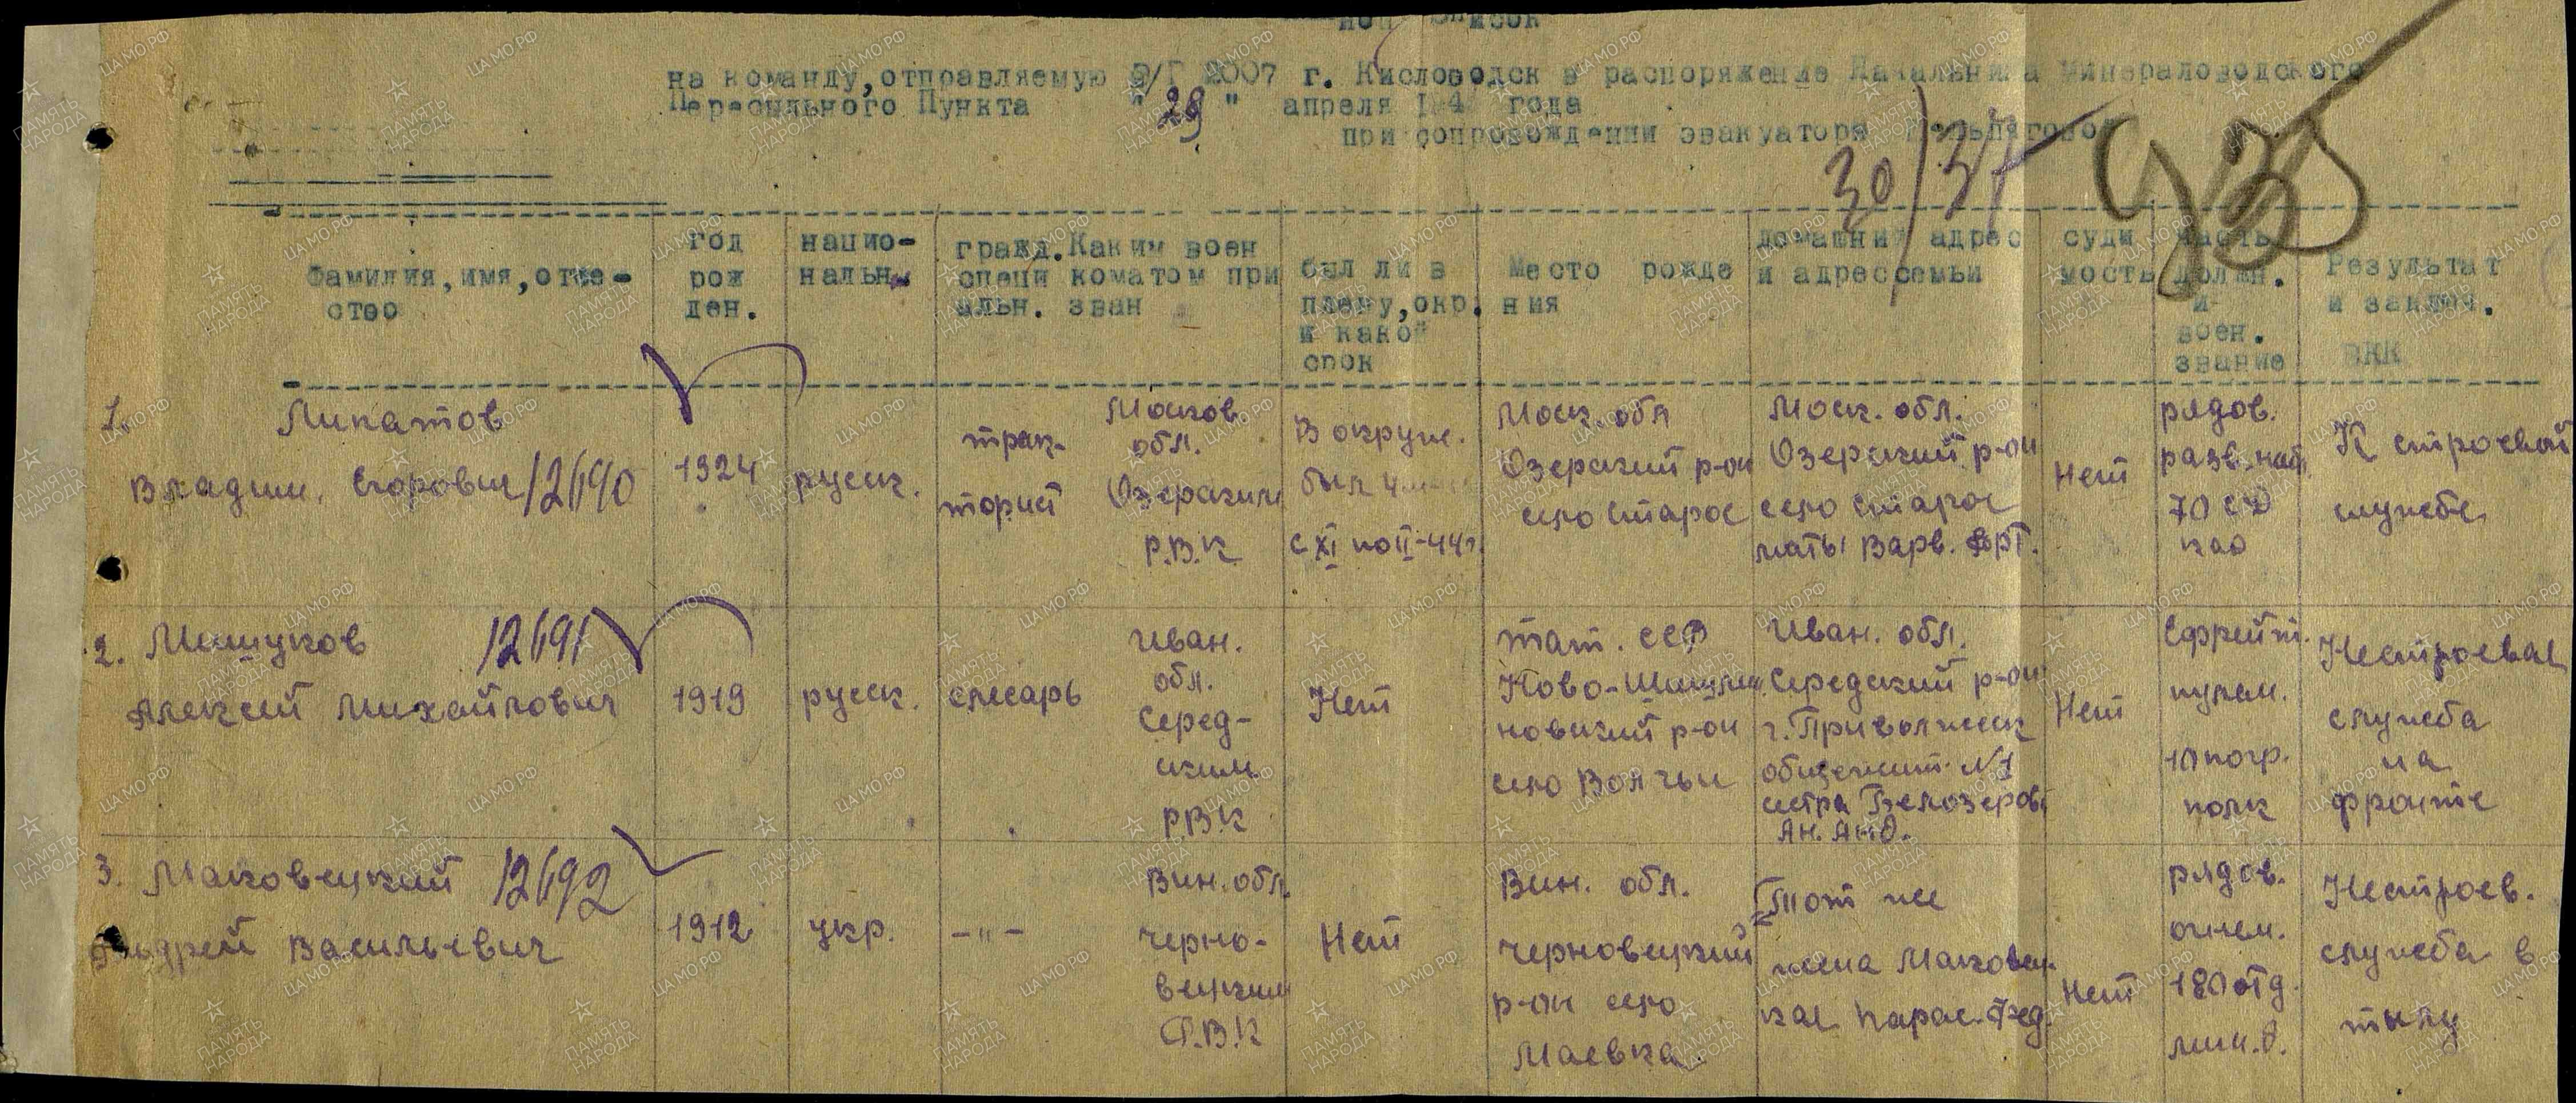 ной список
на команду, отправляемую Э/Г 2007 г. Кисловодск в распоряжение Начальника Минераловодского
Пересыльного Пункта "29" апреля 194 года
при сопровождении эвакуатора
30/37
Фамилия, имя, отче-
ство
год
рож
ден.
нацио-
нальн
гражд.
специ
альн.
Каким воен
коматом при
зван
был ли в
плену, окр.
и какой
срок
Место рожде
ния
домашний адрес
и адрес семьи
суди
мость
часть
должн.
и
воен.
звание
Результат
и заключ.
ВКК
1.
Липатов
Владим. Егорович 12690
1924
русск.
трак-
торист
Москов
обл.
Озерским
Р.В.К
В окруж.
был 4
с XI по II-44г.
Моск. обл
Озерский р-он
село Старое
Моск. обл.
Озерский р-он
село Старое
мать Варв.
Нет
рядов.
развед.
70 СД
К строевой
службе
2. Мишуков 12691
Алексей Михайлович
1919
русск.
слесарь
Иван.
обл.
Серед-
ским
Р.В.К
Нет
Тат. ССР
Ново-Шешми
новский р-он
село Волчьи
Иван. обл.
Середский р-он
г. Приволжск
общежит. №1
сестра Белозерова
Ан. Анд.
Нет
Ефрейт.
пулем.
погр.
полк
Нестроевая
служба
на
фронте
3. Маковецкий 12692
Андрей Васильевич
1912
укр.
-"-
Вин. обл.
Черно-
вецким
Р.В.К
Нет
Вин. обл.
Черновецкий
р-он село
Маевка
Тот же
жена Маковец-
кая Парас. Фед.
Нет
рядов.
огнем.
180 отд.
мин. д.
Нестроев.
служба в
тылу
ПАМЯТЬ
НАРОДА
ЦАМО.РФ